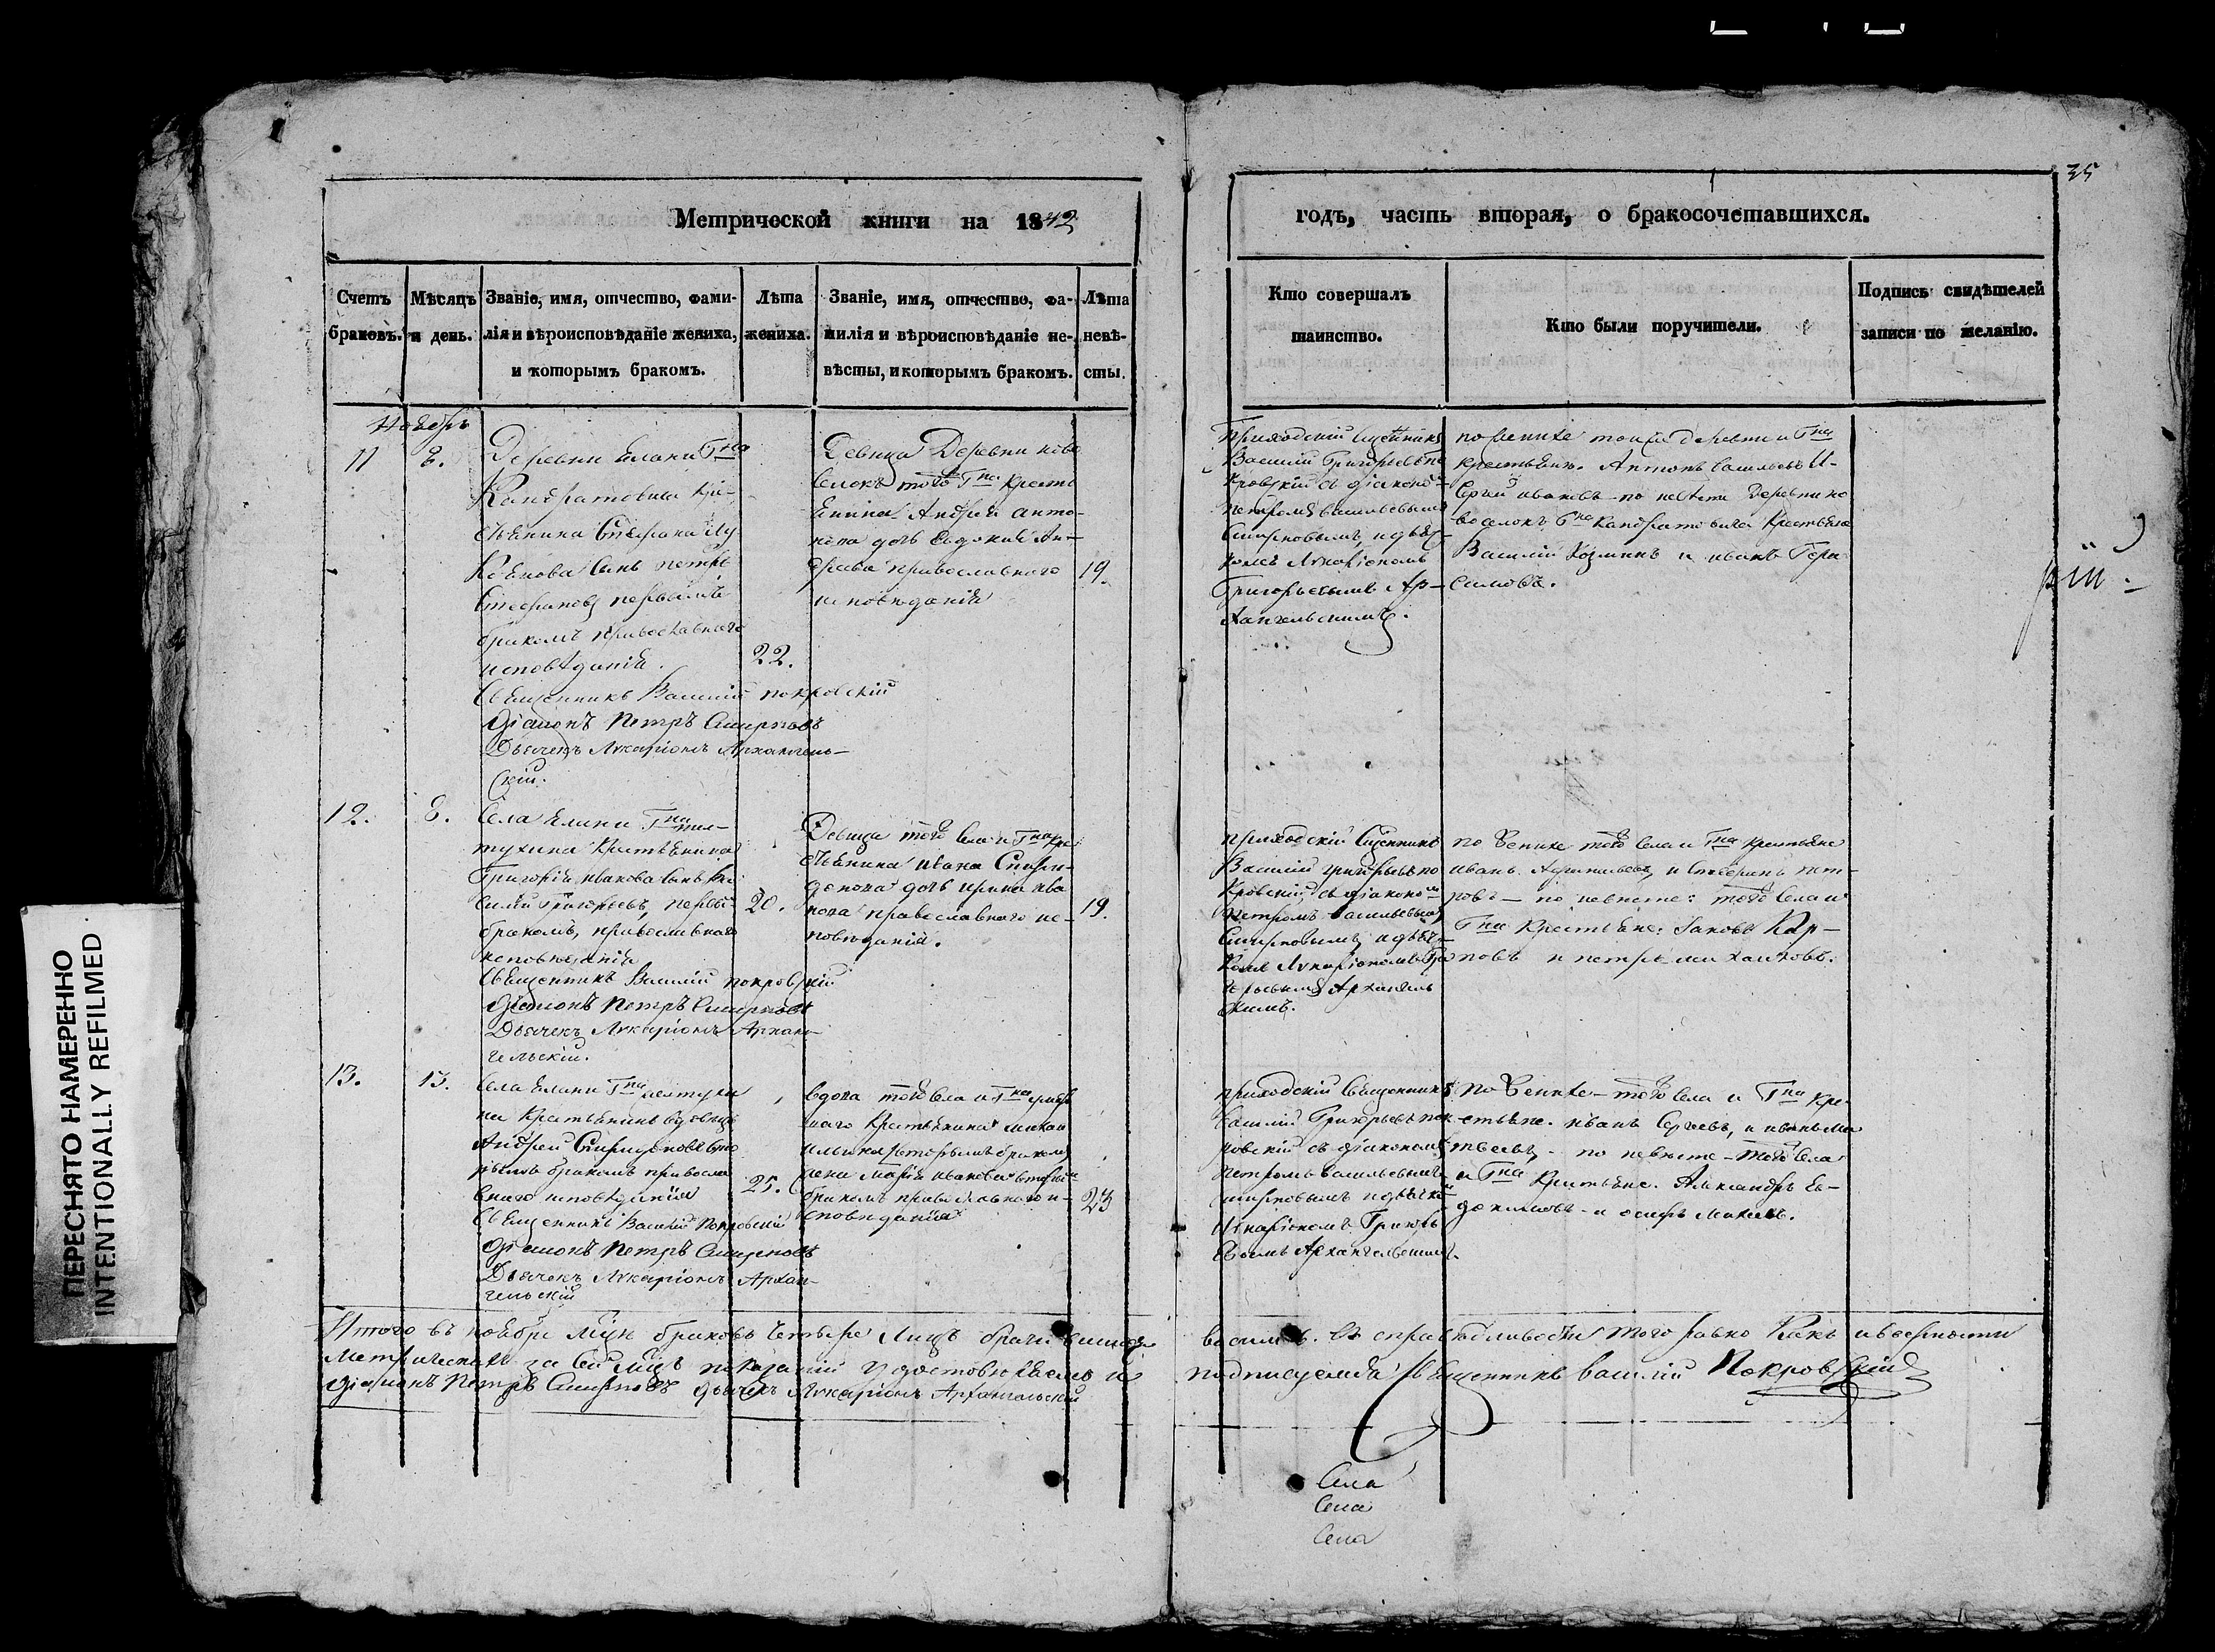 35
Метрической книги на 1842
годъ, часть вторая, о бракосочетавшихся.
Счетъ браковъ.
Мѣсяцъ и день.
Званіе, имя, отчество, фами-
лія и вѣроисповѣданіе жениха,
и которымъ бракомъ.
Лѣта
жениха.
Званіе, имя, отчество, фа-
милія и вѣроисповѣданіе не-
вѣсты, и которымъ бракомъ.
Лѣта
невѣ-
сты.
Кто совершалъ
таинство.
Кто были поручители.
Подпись свидѣтелей
записи по желанію.
Ноябрь
11
8.
Деревни Елани Гна
Кандратовича кре-
стьянина Стефана Лу
сынъ петръ
Стефановъ первымъ
бракомъ православнаго
исповѣданія.
22.
Священникъ Василій покровскій
Діаконъ Петръ Смирновъ
Дьячекъ Лукаріонъ Архангель-
скій.
Девица Деревни ново
селокъ того Гна крест
янина Андрея анто-
нова дочь Евдокия Ан-
древа православнаго
исповѣданія
19.
Приходскій Сщенникъ
Василий Григорьевъ По
кровскій съ діакономъ
петромъ васильевымъ
Смирновымъ, и дьяч-
комъ Лукаріономъ
Григорьевымъ Ар-
хангельскимъ.
по женихе тойже деревни и Гна
крестьяне. Антонъ васильевъ И-
Сергей ивановъ по невѣсте Деревни но
воселокъ Гна Кандратовича крестьяне
Василий Козминъ и иванъ Гера-
симовъ.
рій.
12.
8.
Села Елани Гна
тухина Крестьянина
Григорія иванова сынъ Ва
силій Григорьевъ, первы
бракомъ, православнаго
исповѣданія
20.
Священникъ Василий покровскій
Діаконъ Петръ Смирновъ
Дьячекъ Лукаріонъ Архан-
гельскій.
Девица того села и Гна кре
стьянина ивана Спири-
донова дочь ирина ива
нова православнаго ис-
повѣданія.
19.
приходскій Сщенникъ
Василий григорьевъ по
кровскій, съ діакономъ
петромъ васильевымъ
Смирновымъ, и дьяч-
комъ Лукаріономъ Гри
горьевымъ Архангель
скимъ.
по женихе того села и Гна крестьяне
иванъ и Стефанъ пет-
ровъ — по невѣсте: того села и
Гна Крестьяне: Iаковъ Кар-
повъ и петръ михаиловъ.
13.
13.
Села Елани Гна
на Крестьянинъ вдовецъ
Андрей Спиридоновъ вто
рымъ бракомъ правосла
внаго исповѣданія
25.
Священникъ Василий Покровский
Діаконъ Петръ Смирновъ
Дьячекъ Лукаріонъ Архан-
гельскій
вдова того села и Гна умер
шаго Крестьянина михаи
жена Марія иванова вторымъ
бракомъ православнаго и-
споведанія
23
приходскій Священникъ
Василий Григорьевъ пок
ровскій съ діакономъ
петромъ васильевымъ
смирновымъ и дьячко
Лукаріономъ Григорь
евымъ Архангельскимъ.
По женихе — того села и Гна Кре-
стьяне. иванъ Сергеевъ, и иванъ Ма
твеевъ, — по невѣсте — того села
и Гна Крестьяне. Александръ Ев-
докимовъ — и осипъ
Итого въ ноябрѣ мцѣ браковъ четыре лицъ
восимь. въ справедливости того равно какъ и верности
Метрическихъ за сей мцъ показаній удостовѣряемъ и
подписуемся Священникъ василий Покровскій
Діаконъ Петръ Смирновъ дьячекъ Лукаріонъ Архангельскій
Села
Села
Села
ПЕРЕСНЯТО НАМЕРЕННО
INTENTIONALLY REFILMED